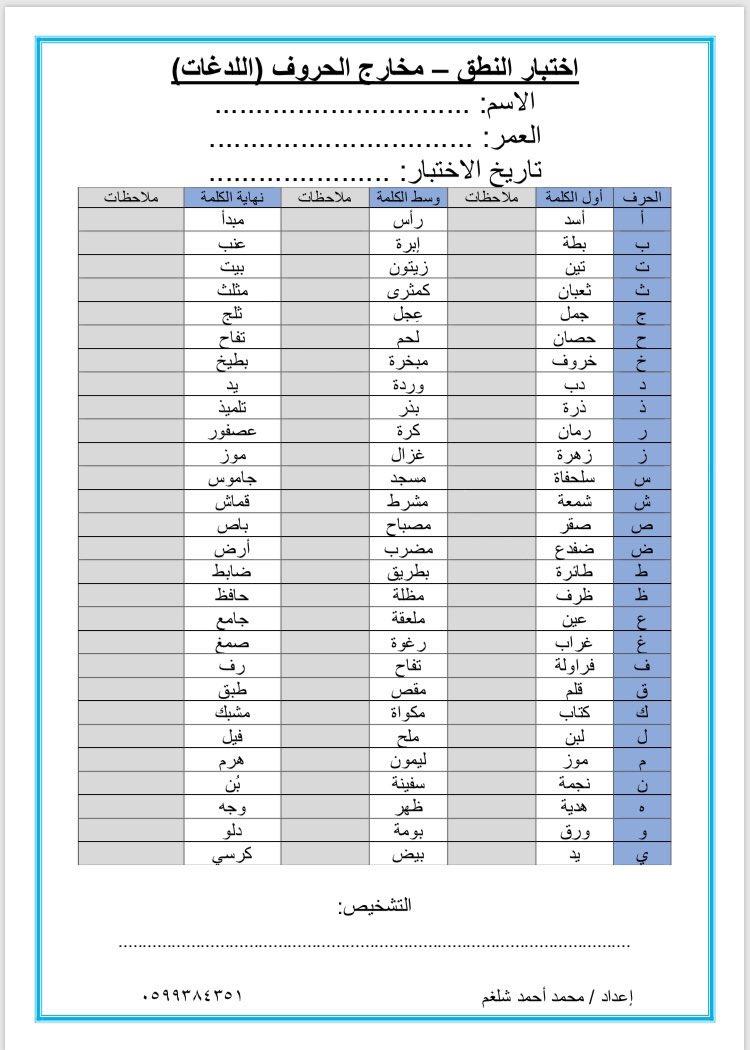 اختبار النطق – مخارج الحروف (اللدغات)
الاسم: ...............................
العمر: ................................
تاريخ الاختبار: ......................
الحرف أول الكلمة ملاحظات وسط الكلمة ملاحظات نهاية الكلمة ملاحظات
أ أسد رأس مبدأ
ب بطة إبرة عنب
ت تين زيتون بيت
ث ثعبان كمثرى مثلث
ج جمل عِجل ثلج
ح حصان لحم تفاح
خ خروف مبخرة بطيخ
د دب وردة يد
ذ ذرة بذر تلميذ
ر رمان كرة عصفور
ز زهرة غزال موز
س سلحفاة مسجد جاموس
ش شمعة مشرط قماش
ص صقر مصباح باص
ض ضفدع مضرب أرض
ط طائرة بطريق ضابط
ظ ظرف مظلة حافظ
ع عين ملعقة جامع
غ غراب رغوة صمغ
ف فراولة تفاح رف
ق قلم مقص طبق
ك كتاب مكواة مشبك
ل لبن ملح فيل
م موز ليمون هرم
ن نجمة سفينة بُن
ه هدية ظهر وجه
و ورق بومة دلو
ي يد بيض كرسي
التشخيص:
................................................................................................
إعداد / محمد أحمد شلغم ٠٥٩٩٣٨٤٣٥١